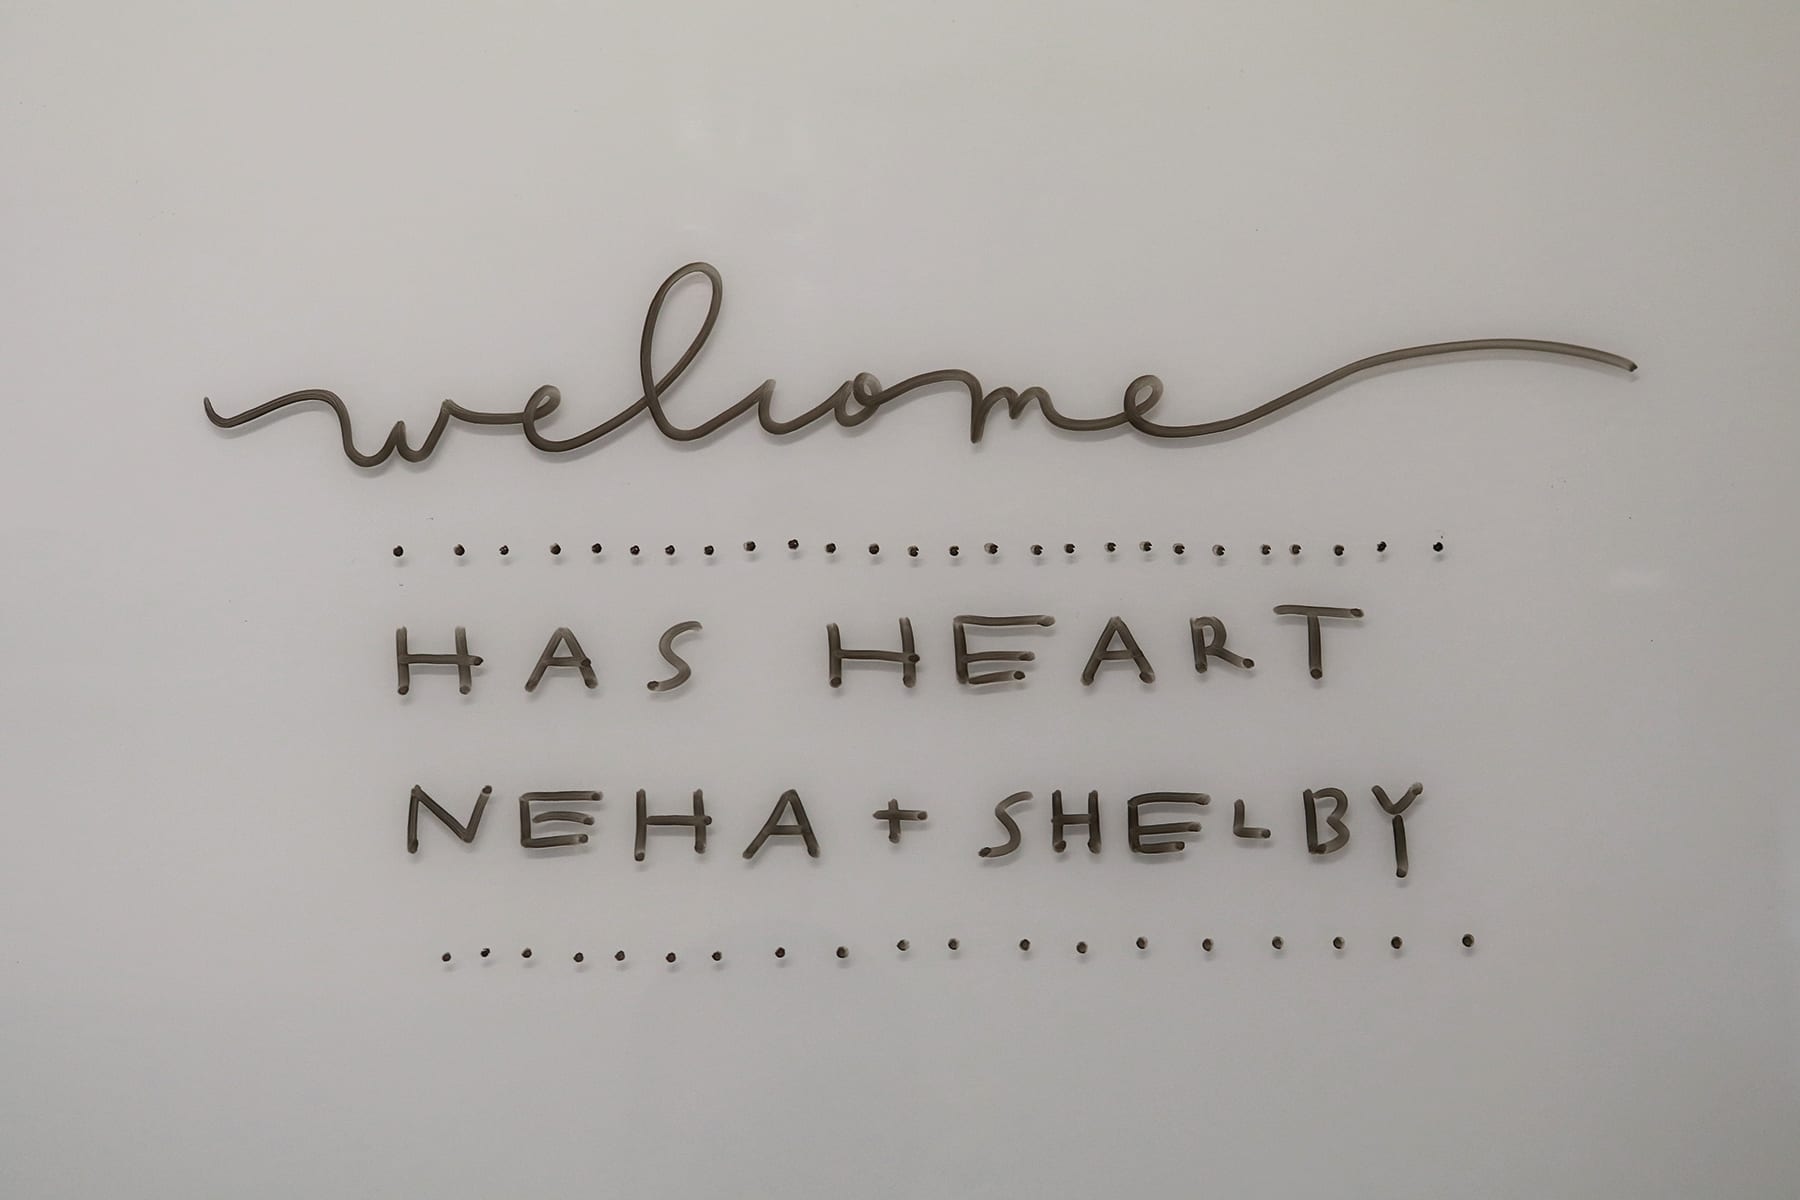 welcome
HAS HEART
NEHA + SHELBY